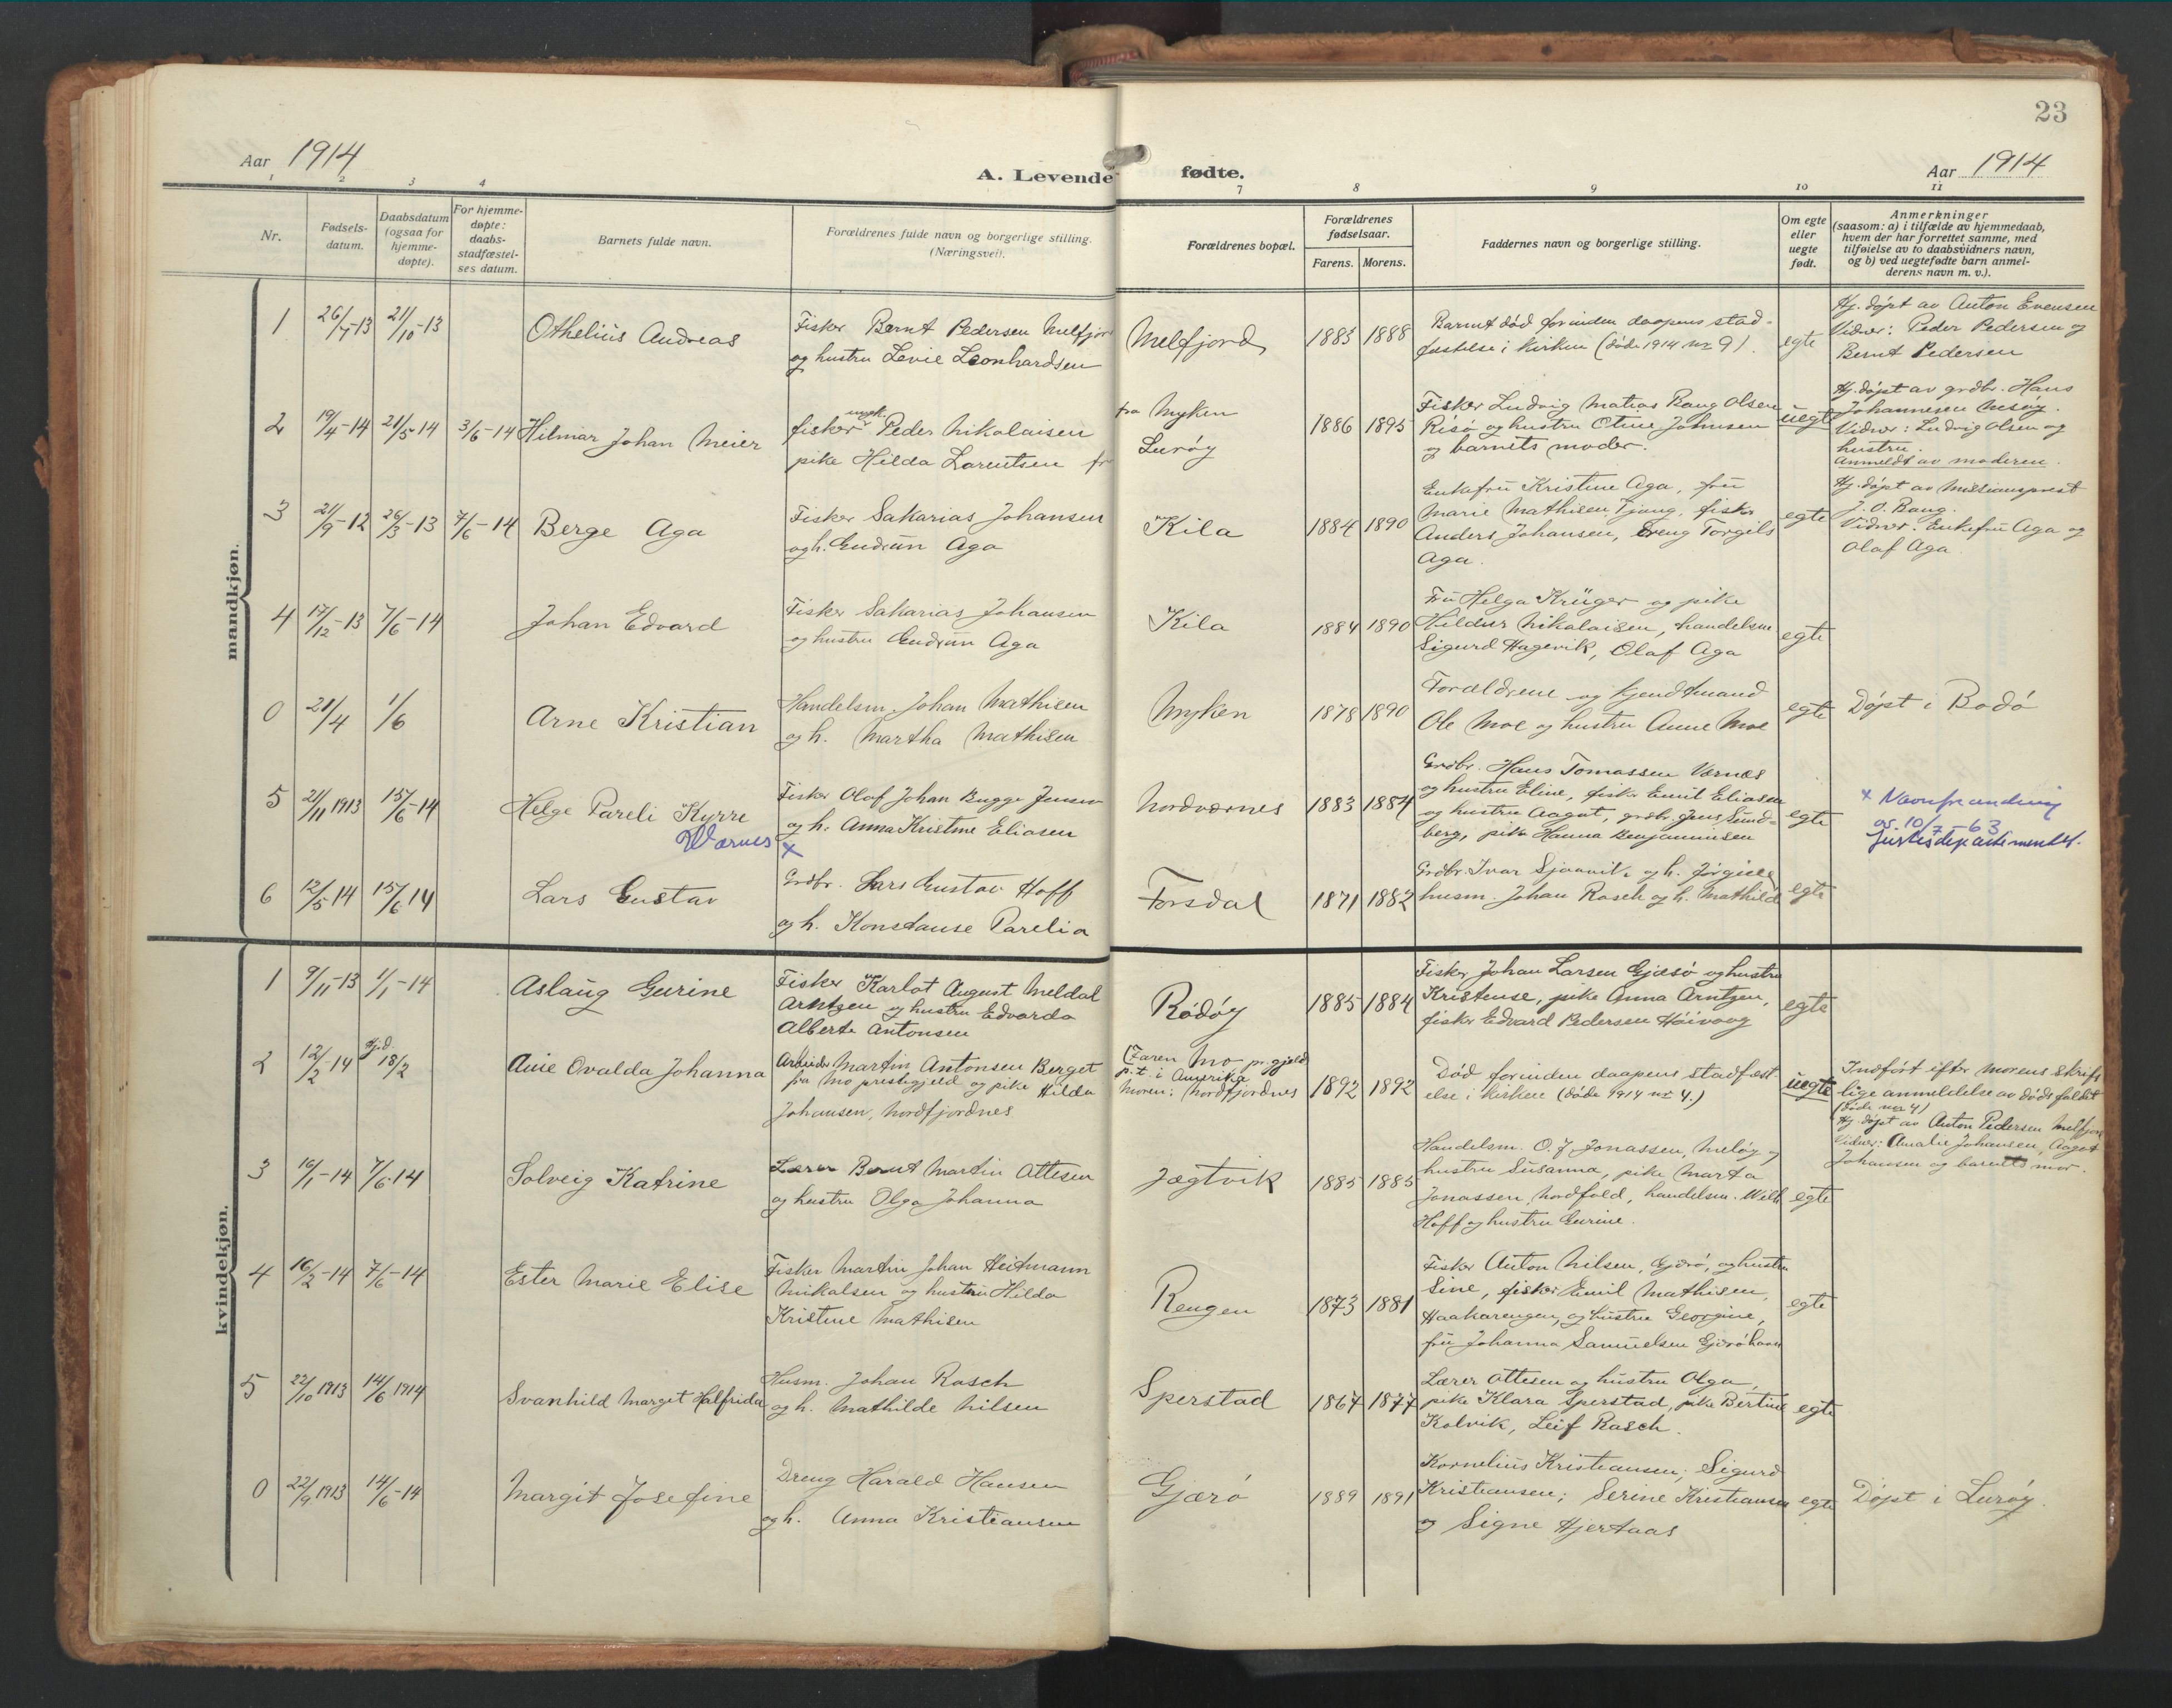 23
Aar 1914
A. Levende fødte.
Aar 1914
1 2 3 4 7 8 9 10 11
Nr.
Fødsels-
datum.
Daabsdatum
(ogsaa for
hjemme-
døpte).
For hjemme-
døpte:
daabs-
stadfæstel-
ses datum.
Barnets fulde navn.
Forældrenes fulde navn og borgerlige stilling.
(Næringsvei).
Forældrenes bopæl.
Forældrenes
fødselsaar.
Farens. Morens.
Faddernes navn og borgerlige stilling.
Om egte
eller
uegte
født.
Anmerkninger
(saasom: a) i tilfælde av hjemmedaab,
hvem der har forrettet samme, med
tilføielse av to daabsvidners navn,
og b) ved uegtefødte barn anmel-
derens navn m. v.).
mandkjøn.
1 26/7-13 21/10-13 Othelius Andreas
Fisker Bernt Pedersen Melfjor
og hustru Levie Leonhardsen
Melfjord 1883 1888
Barnet död forinden daapens stad-
fæstelse i kirken (döde 1914 nr 9).
egte
Hj. döpt av Anton Evensen
Vidner: Peder Pedersen og
Bernt Pedersen
2 19/4-14 21/5-14 3/6-14 Hilmar Johan Meier
fisker ungk. Peder Nikolaisen
pike Hilda Lorentsen fr
fra Myken
Luröy
1886 1895
Fisker Ludvig Matias Bang Olsen
Risö og hustru Otine Johnsen
og barnets moder.
uegte
Hj. döpt av grdbr. Hans
Johannesen Mesöy.
Vidner: Ludvig Olsen og
hustru.
Anmeldt av moderen.
3 21/9-12 26/3-13 7/6-14 Berge Aga
Fisker Sakarias Johansen
og h. Gudrun Aga
Kila 1884 1890
Enkefru Kristine Aga, fru
Marie Mathisen Tjong, fisker
Anders Johansen, dreng Torgils
Aga.
egte
Hj. döpt av Missionsprest
J. O. Bang.
Vidner: Enkefru Aga og
Olaf Aga.
4 17/12-13 7/6-14 Johan Edvard
Fisker Sakarias Johansen
og hustru Gudrun Aga
Kila 1884 1890
Fru Helga Krüger og pike
Hildur Nikolaisen, handelsm
Sigurd Hagevik, Olaf Aga
egte
0 21/4 1/6 Arne Kristian
Handelsm. Johan Mathisen
og h. Martha Mathisen
Myken 1878 1890
Forældrene og kjendtmand
Ole Moe og hustru Anne Moe
egte Döpt i Bodö
5 21/11 1913 15/6-14 Helge Pareli Kyrre
Værnes x
Fisker Olaf Johan Bugge Jensen
og h. Anna Kristine Eliasen
Nordværnes 1883 1884
Grdbr. Hans Tomassen Værnes
og hustru Eline, fisker Emil Eliasen
og hustru Aagot, grdbr. Jens Sund-
berg, pike Hanna Benjaminsen
egte
x Navneforandring
av 10/7-63
Justisdepartementet.
6 12/5 14 15/6 14 Lars Gustav
Grdbr. Lars Gustav Hoff
og h. Konstanse Parelia
Forsdal 1871 1882
Grdbr. Ivar Sjaavik og h. Jörgine
husm. Johan Rasch og h. Mathild
egte
kvindekjøn.
1 9/11-13 1/1-14 Aslaug Gurine
Fisker Karlot August Meldal
Arntzen og hustru Edvarda
Alberte Antonsen
Rödöy 1885 1884
Fisker Johan Larsen Gjæsö og hustru
Kristense, pike Anna Arntzen,
fisker Edvard Pedersen Höivaag
egte
2 12/2-14 Hjd. 18/2 Anie Ovalda Johanna
Arbeider Martin Antonsen Berget
fra Mo prestegjeld og pike Hilda
Johansen, Nordfjordnes
(Faren Mo pr.gjeld
p.t. i Amerika
Moren: Nordfjordnes
1892 1892
Död forinden daapens stadfæst-
else i kirken (döde 1914 nr 4.)
uegte
Indfört efter morens skrift
lige anmeldelse av dödsfaldet
(döde nr 4)
Hj. döpt av Anton Pedersen Melfjor
Vidner: Amalie Johansen, Aagot
Johansen og barnets mor.
3 16/1-14 7/6-14 Solveig Katrine
Lærer Bernt Martin Ottesen
og hustru Olga Johanna
Jægtvik 1885 1885
Handelsm. O. J. Jonassen, Melöy og
hustru Susanna, pike Marta
Jonassen, Nordfold, handelsm. Wilh
Hoff og hustru Gurine.
egte
4 16/2-14 7/6-14 Ester Marie Elise
Fisker Martin Johan Heitmann
Mikalsen og hustru Hilda
Kristine Mathisen
Rengen 1873 1881
Fisker Anton Nilsen, Gjerö, og hustru
Sine, fisker Emil Mathisen,
Haakarengen, og hustru Georgine,
fru Johanna Samuelsen Gjeröhavn
egte
5 22/10 1913 14/6 1914 Svanhild Marget Halfrida
Husm. Johan Rasch
og h. Mathilde Nilsen
Sperstad 1867 1877
Lærer Ottesen og hustru Olga,
pike Klara Sperstad, pike Bertine
Kolvik, Leif Rasch.
egte
0 22/9 1913 14/6-14 Margit Josefine
Dreng Harald Hansen
og h. Anna Kristiansen
Gjærö 1889 1891
Kornelius Kristiansen; Sigurd
Kristiansen; Serine Kristiansen
og Signe Hjertaas
egte Döpt i Luröy.